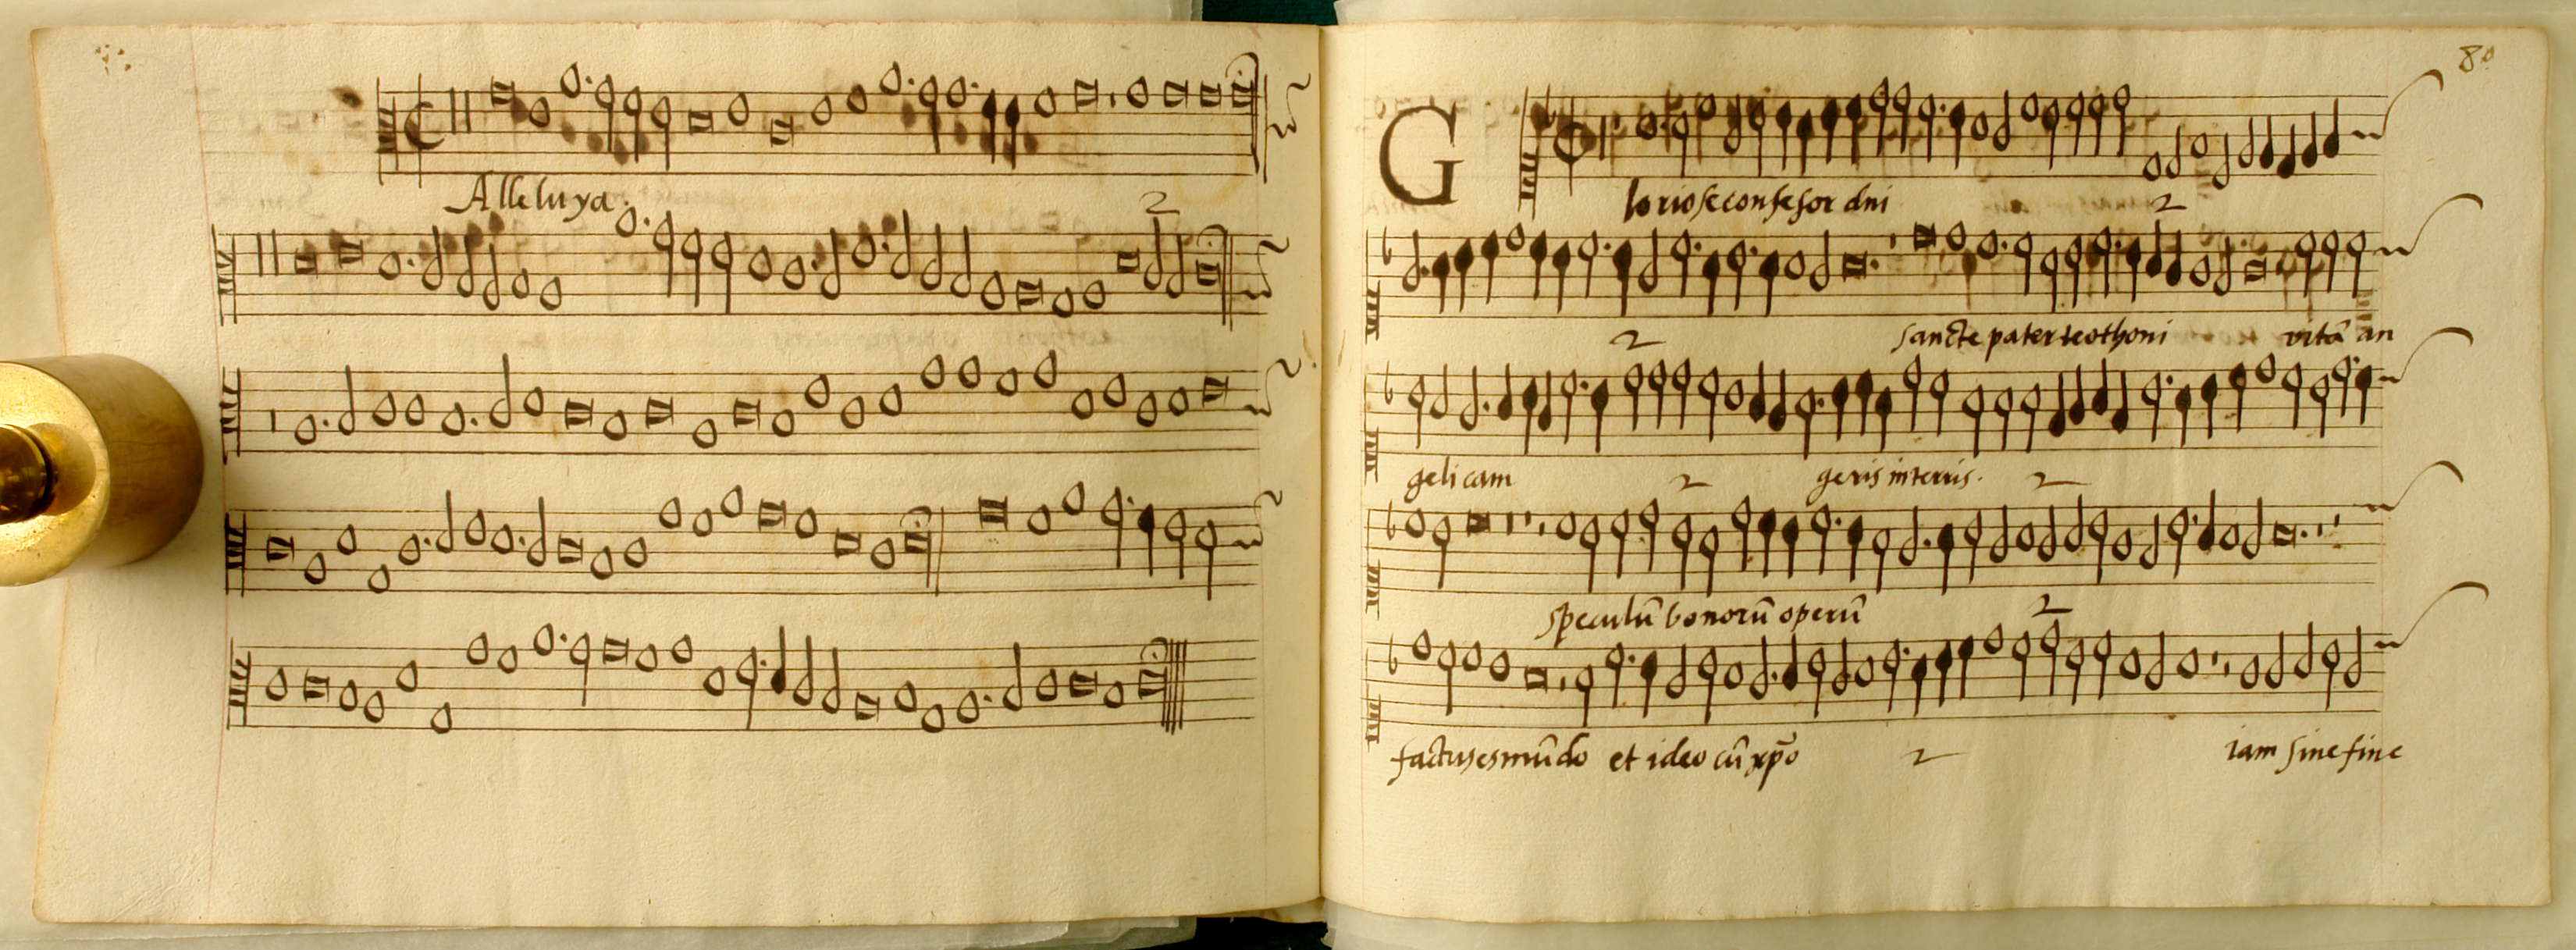 Alleluya
2
80
G
lorioseconfesor dñi 2
2 sancte pater teothoni vitã an
geli cam 2 geris interris. 2
speculũ bonorũ operũ 2
factus es mũdo et ideo cũ xp̃o 2 iam sine fine